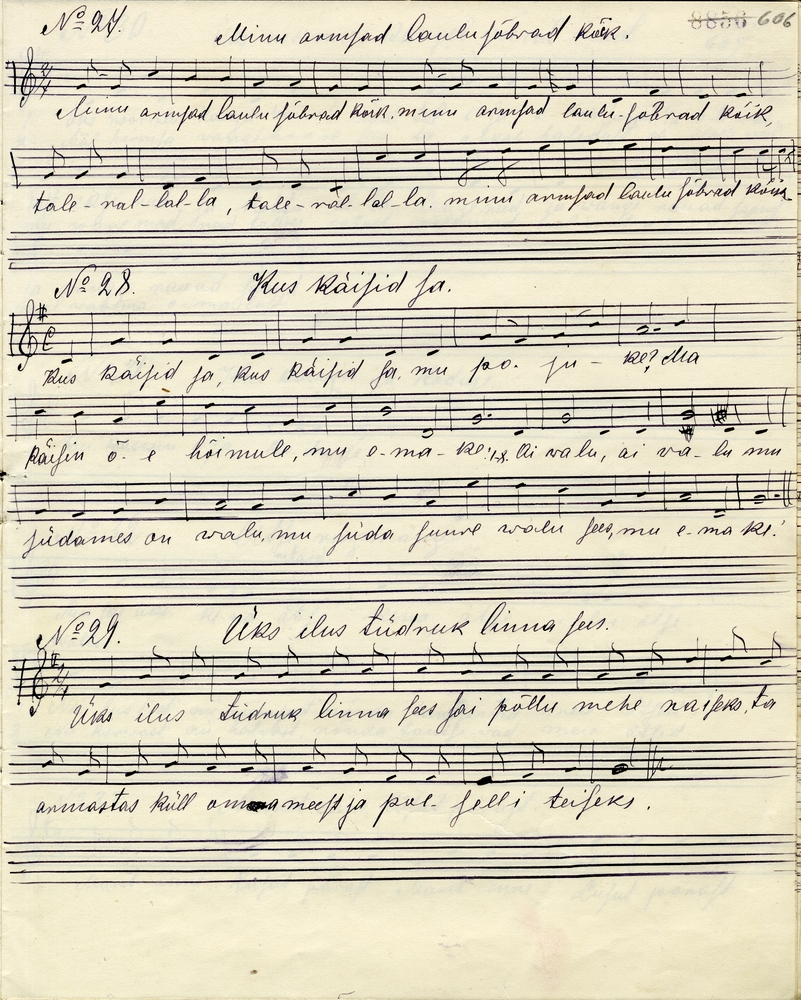 8856 606
No 27. Minu armsad laulu sõbrad kõik.
Minu armsad laulu sõbrad kõik, minu armsad laulu-sõbrad kõik,
tale-ral-lal-la, tale-ral-lal-la. minu armsad laulu sõbrad kõik
No 28. Kus käisid sa.
Kus käisid sa, kus käisid sa, mu po-ju-ke? Ma
käisin õ-e hõimule, mu e-ma-ke! Ai valu, ai va-lu mu
südames on valu, mu süda suure valu sees, mu e-ma ke!
No 29. Üks ilus tüdruk linna sees.
Üks ilus tüdruk linna sees sai põllu mehe naiseks, ta
armastas küll oma meest ja pol-selli teiseks.